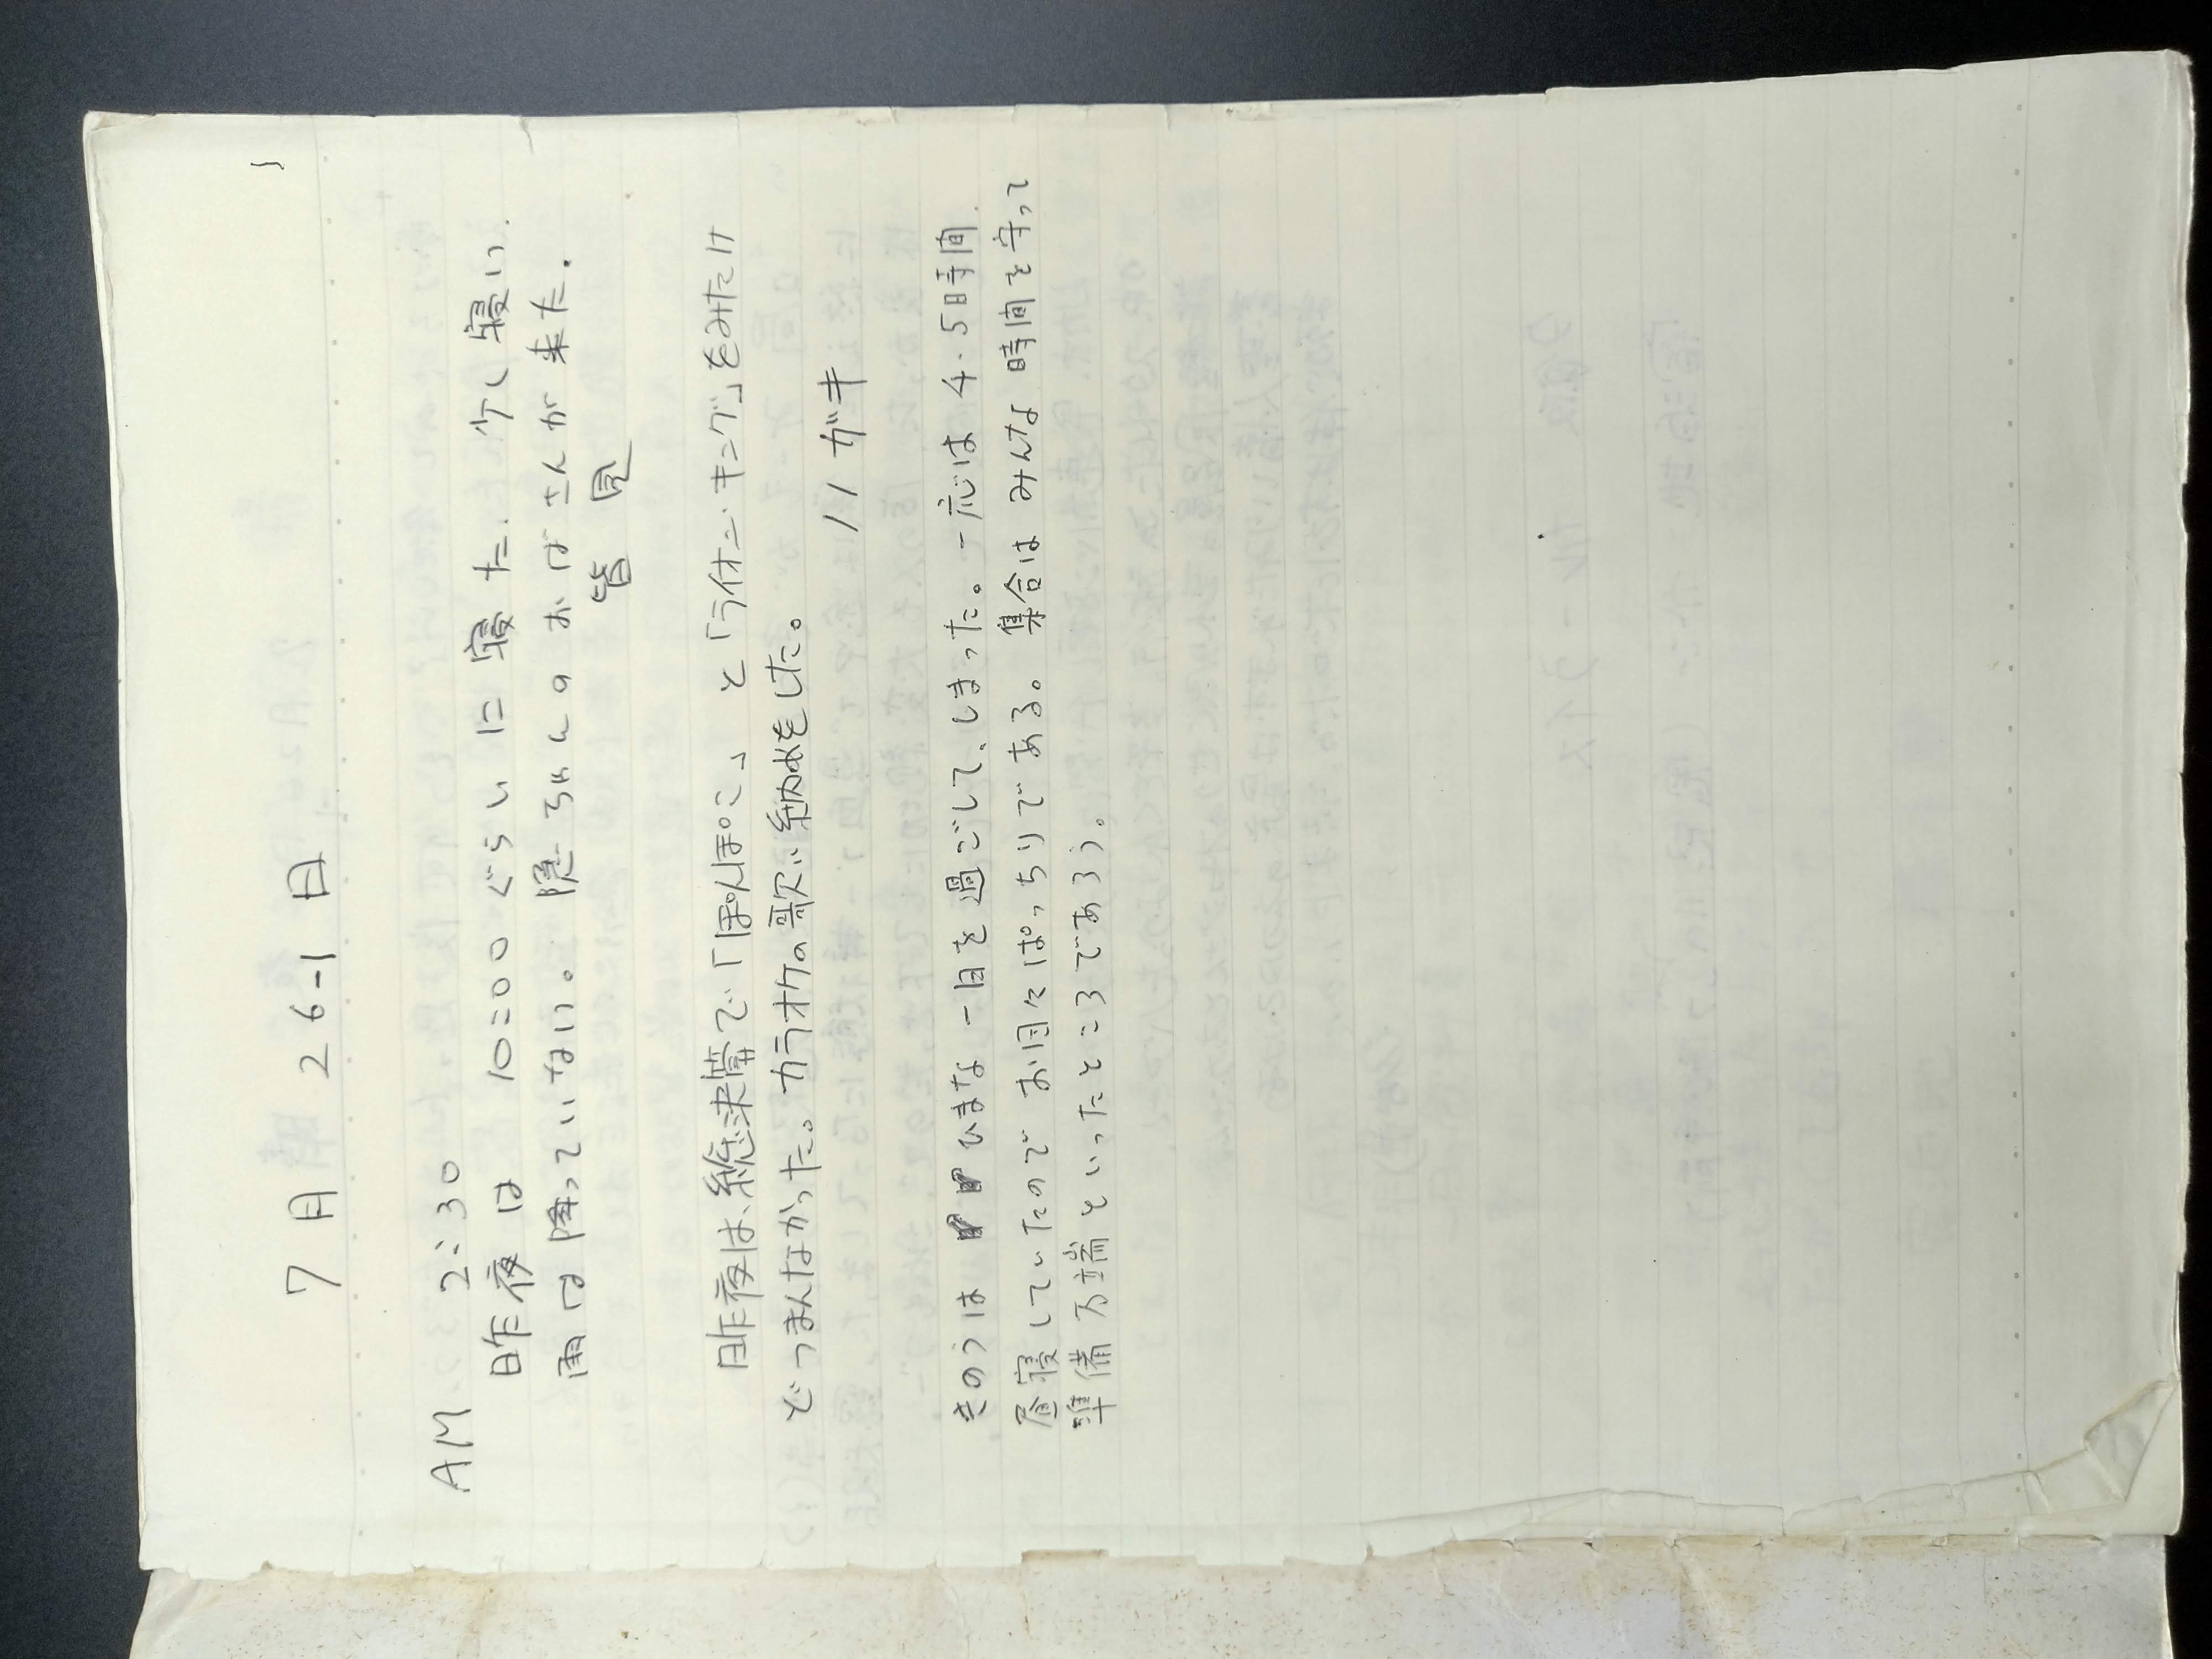 7月26-1日
AM 2:30
昨夜は 10:00ぐらいに寝た. 少し寝い.
雨は降っていない。隠ろんのおばさんが来た.
皆見
昨夜は、総来館で「ぽんぽこ」と「ライオン・キング」をみたけ
どつまんなかった。カラオケの歌い納めをした。
川ガキ
きのうは ひまな一日を過ごして、しまった。一応は4.5時間
昼寝していたので お目々ぱっちりである。集合は みんな時間を守って
準備万端といったところであろう。